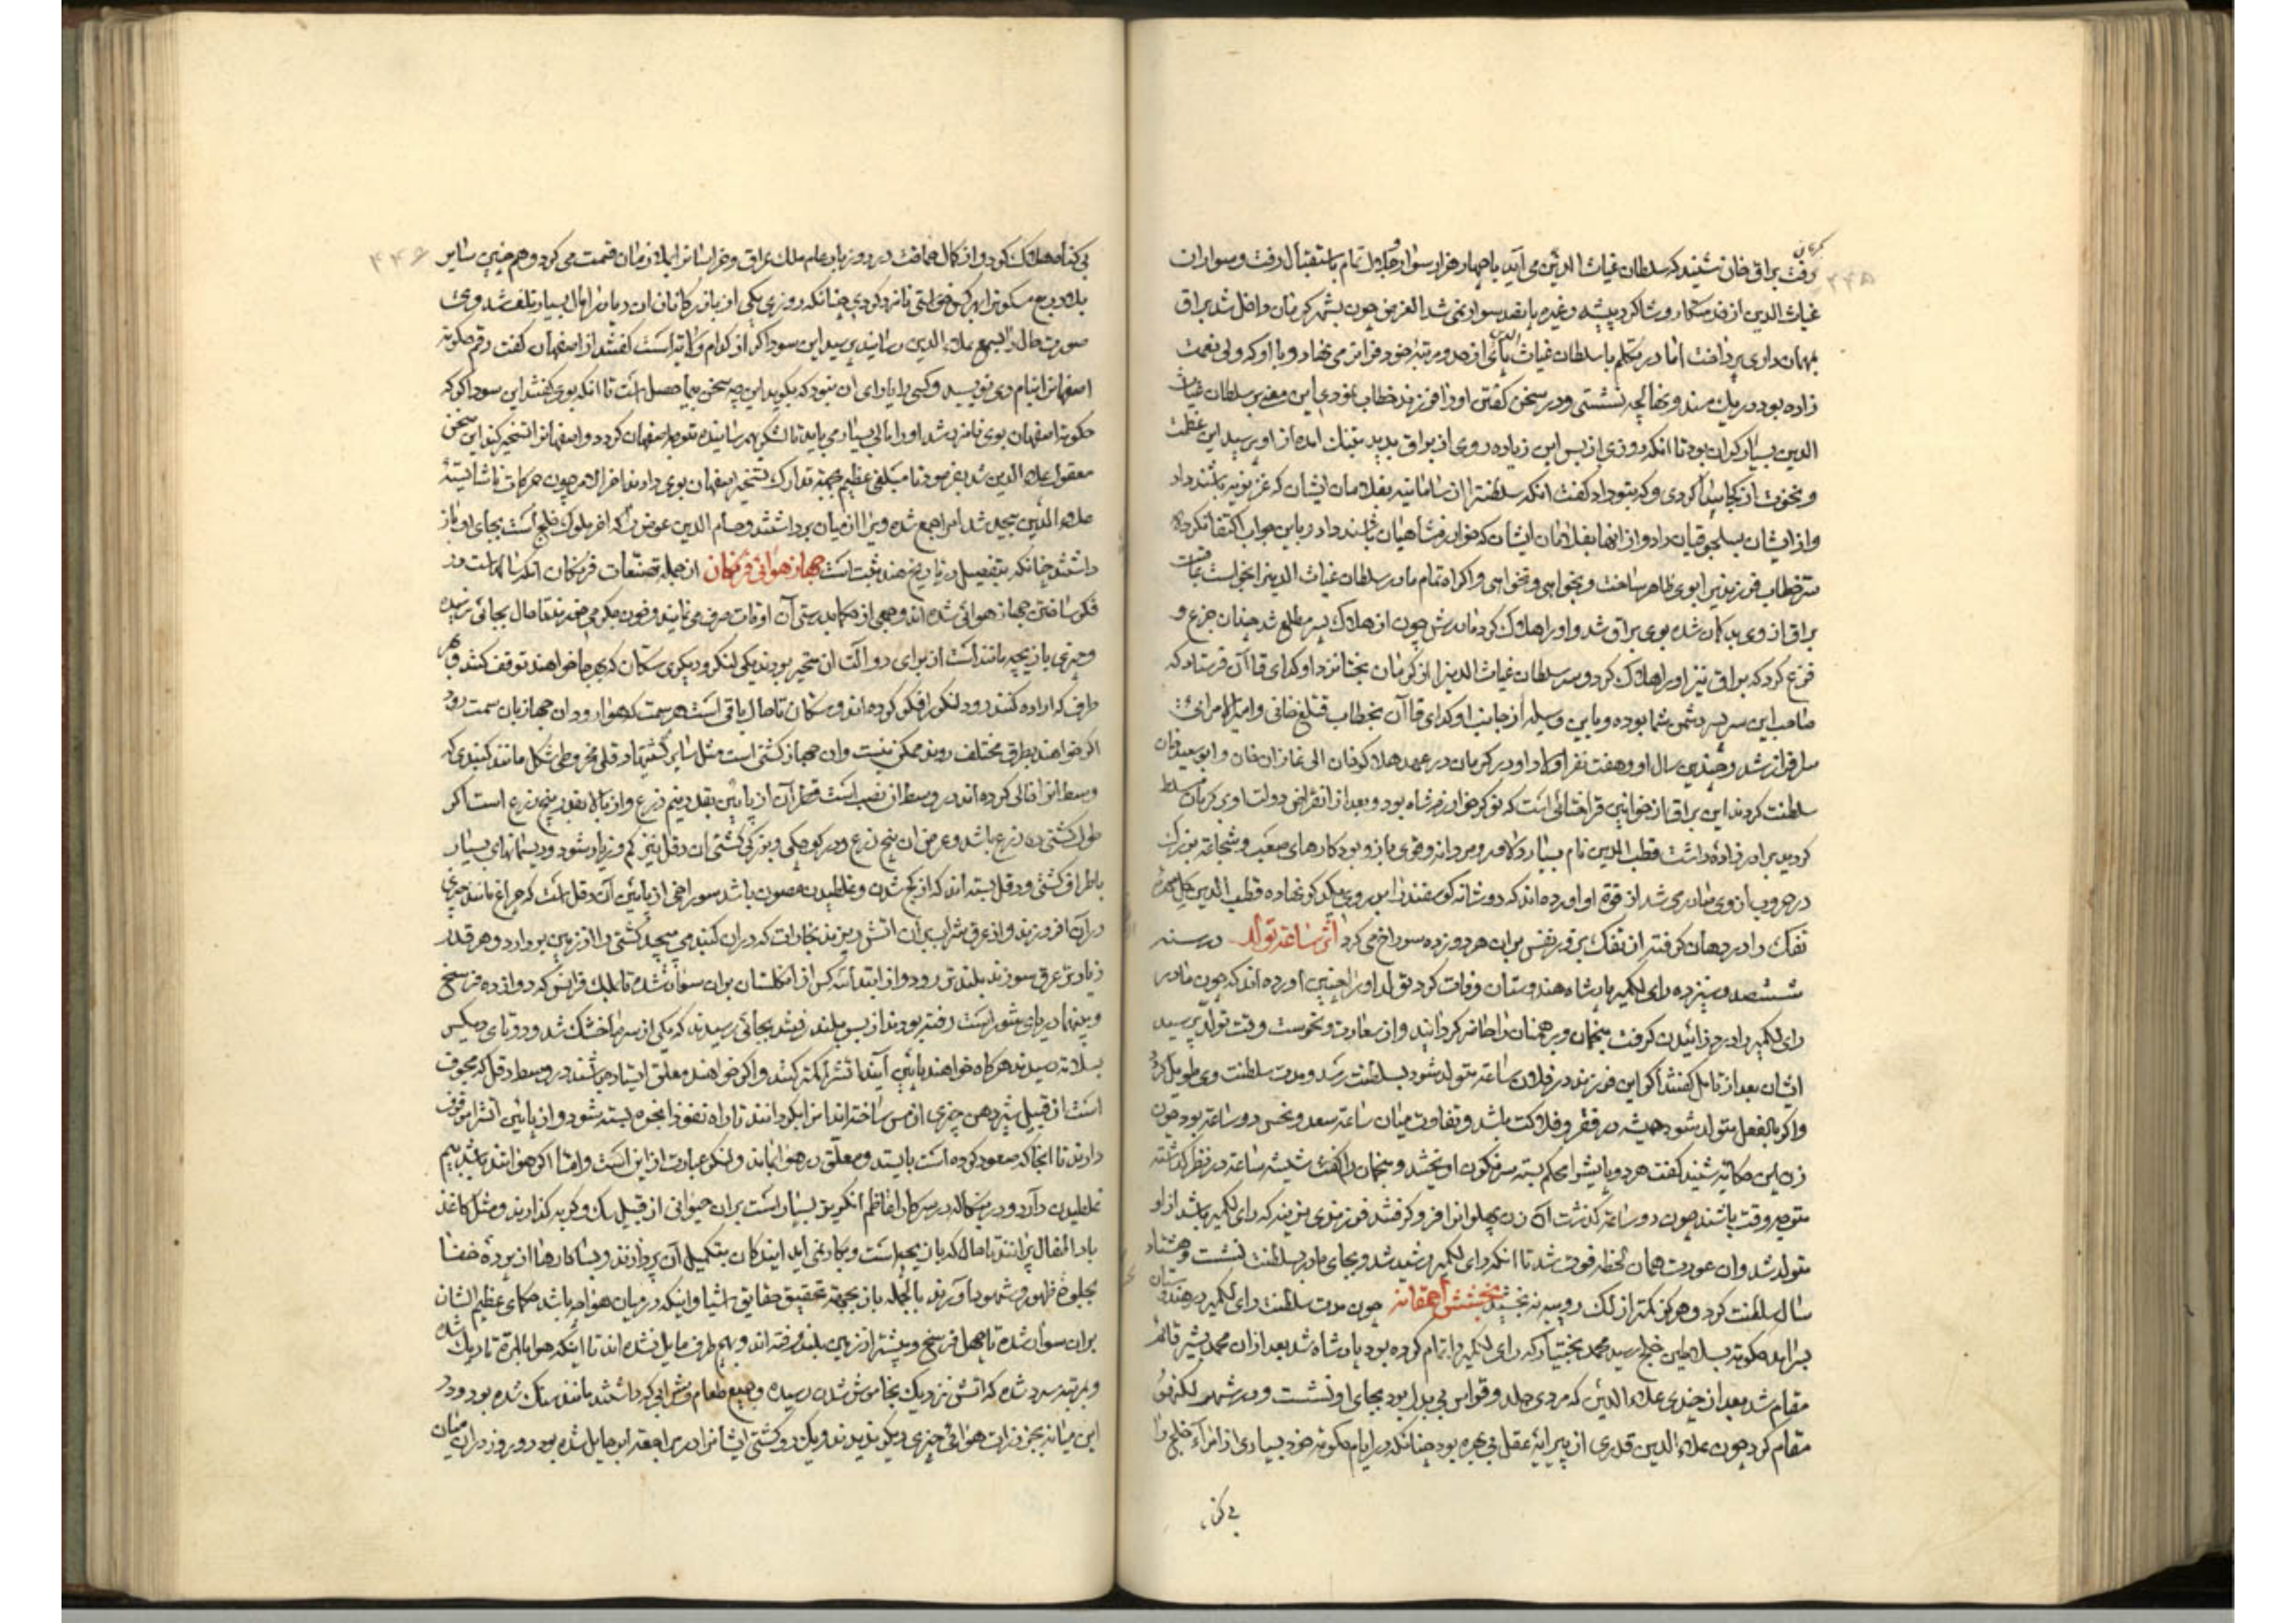 کرمان
رفت براق خان شنید که سلطان غیاث الدین می آید با چهار هزار سوار و جلال تمام باستقبال رفت و سواران
غیاث الدین از خدمتکار و شاکرد پیشه و غیره پانقد سوار نمی شد الغرض چون بشهر کرمان داخل شد براق
بمهمانداری پرداخت اما در تکلم با سلطان غیاث الدین پای از حد و مرتبه خود فراتر می نهاد و با او که ولی نعمت
زاده بود در یك مسند و نهالچه نشستی و در سخن کفتن او را فرزند خطاب نمودی این معنی بر سلطان غیاث
الدین بسیار کران بود تا انکه روزی از بس این زیاده روی از براق بدید بتنك امده از او پرسید این عظمت
و نخوت از کجا پیدا کردی و که بتو داد کفت انکه سلطنت را از سامانیه بغلامان ایشان که غزنویه باشند داد
و از ایشان بسلجوقیان داد و از انها بغلامان ایشان که خوارزمشاهیان باشند داد و باین جواب اکتفا نکرده
خطاب فرزندی را بوی ظاهر ساخت و بخواهی و نخواهی و اکراه تمام مادر سلطان غیاث الدین را بخواست
براق از وی بد کمان شده بوی براق شد و او را هلاک کرد مادرش چون از هلاک پسر مطلع شد چندان جزع و
فزع کرد که براق نیز او را هلاک کرد و سر سلطان غیاث الدین را از کرمان بخدمت اوکدای قاآن فرستاد که
صاحب این سر پسر دشمن شما بوده و باین وسیله از جانب اوکدای قاآن بخطاب قتلغ خانی و امیر الامرائی
سرافراز شد و چندین سال او و هفت نفر اولاد او در کرمان در عهد هلاکو خان الی غازان خان و ابو سعید خان
سلطنت کردند این براق از خوانین قراختائی است که نوکر خوارزمشاه بود و بعد از انقراض دولت او بر کرمان مسلط
کردید برادر زادۀ داشت قطب الدین نام بسیار دلاور و مردانه و قوی بازو بود کارهای صعب و شجاعت بزرك
در حروب از وی صادر می شد از قوۀ او اورده اند که دو شانه کوسفند را بر روی یکدیکر نهاده قطب الدین
تفک را در دهان کرفته از تفک بزور نفس بران هر دو زده سوراخ می کرد اثر ساعة تولد در سنه
ششصد و سیزده رای لکمیه پادشاه هندوستان وفات کرد تولد او را چنین اورده اند که چون مادر
رای لکمیه را درد زائیدن کرفت منجمان و برهمنان را حاضر کردانید و از سعادت و نحوست وقت تولد پرسید
ایشان بعد از تامل کفتند اکر این فرزند در فلان ساعة متولد شود بسلطنت رسد و مدت سلطنت وی طویل کردد
و اکر بالفعل متولد شود همیشه در فقر و فلاکت باشد و تفاوت میان ساعة سعد و نحس دو ساعة بود چون
زن این حکایة شنید کفت هر دو پایش را محکم بسته سرنکون اویختند و منجمان را کفت شیشه ساعة در نظر کذاشته
متوجه وقت باشند چون دو ساعة کذشت آن زن پهلوانرا فرو کرفتند فرزندی نرینه که رای لکمیه باشد از او
متولد شد و ان عورت همان لحظه فوت شد تا انکه رای لکمیه رشید شد و بجای پدر بسلطنت نشست و هشتاد
سال سلطنت کرد و هرکز کمتر از لک روپیه نه بخشید بخشش احمقانه چون مدت سلطنت رای لکمیه در هندوستان
بسر امد حکومة بسلاطین خلج رسید محمد بختیار که رای لکمیه را تمام کرده بود پادشاه شد بعد از ان محمد شیر قائم
مقام شد بعد از چندی علاء الدین که مردی جلد و قواس بی بدل بود بجای او نشست و در شهر لکنهوتی
مقام کرد چون علاء الدین قدری از پیرایۀ عقل بی بهره بود چنانکه در ایام حکومة خود بسیاری از امراء خلج را
بی کناه
بی کناه هلاک کرد و از کمال حماقت در روز بار عام ملك عراق و خراسانرا بملازمان قسمت می کرد و هم چنین سایر
بلاد ربع مسکونرا بهر کس خواستی نامزد کردی چنانکه روزی یکی از بازرکانان ان دیار را مال بسیار تلف شد و وی
صورت حال را بسمع علاء الدین رسانید پرسید این سوداکر از کدام ولایة است کفتند از اصفهان کفت رقم حکومة
اصفهانرا بنام وی نویسید و کسی را یارای ان نبود که بکوید این چه سخن بیحاصل است تا انکه بوی کفتند این سوداکر که
حکومة اصفهان بوی نامزد شد او را مالی بسیار می باید تا لشکر بهم رسانیده متوجه اصفهان کردد و اصفهانرا تسخیر کند این سخن
معقول علاء الدین شد بفرمود تا مبلغی عظیم بجهة تدارک تسخیر اصفهان بوی دادند اخر الامر چون حرکات ناشایستۀ
علاء الدین بیحد شد امرا جمع شده ویرا از میان برداشتند و حسام الدین عوض را که اخر ملوک خلج است بجای او باز
داشتند چنانکه بتفصیل در تاریخ هند ثبت است جهاز هوائی فرنکان از جمله تصنعات فرنکان انکه سالهاست در
فکر ساختن جهاز هوائی شده اند و جمعی از حکما بدرستی آن اوقات صرف می نمایند و خون جکر می خورند تا حال بجائی نرسیده
و چیزی بازیچه مانند است از برای دو الت ان متحیر بودند یکی لنکر و دیکری سکان که بهر جا خواهند توقف کنند و بهر
طرف که اراده کنند رود لنکر را فکر کرده اند و سکان تا حال باقی است هر سمت که هوا رود ان جهاز بان سمت رود
اکر خواهند بطرق مختلف روند ممکن نیست و ان جهاز کشتی است مثل سایر کشتیها دقلی مخروطی شکل مانند کنبدی که
وسط انرا خالی کرده اند در وسط ان نصب است قطر آن از پایین بقدر نیم ذرع و از بالا بقدر پنج ذرع است اکر
طول کشتی ده ذرع باشد و عرض ان پنج ذرع و در کوچکی و بزرکی کشتی ان دقل نیز کم و زیاد شود و ریسمانهای بسیار
باطراف کشتی و دقل بسته اند که از کج شدن و غلطیدن مصون باشد سوراخی از پایین آن دقل است که چراغ مانند چیزی
در آن افروزند و از عرق شراب بران اتش ریزند بخارات که در ان کنبد می پیچد کشتی را از زمین بردارد و هر قدر
زیادتر عرق سوزند بلندتر رود و از ابتدا سه کس از انکلستان بران سوار شده تا ملك فرانس که دوازده فرسخ
و بینهما دریای شور است رفته بودند از بس بلند رفتند بجائی رسیدند که یکی از سرما خشک شد و دو تای دیکر
بسلامة رسیدند هرکاه خواهند پایین آیند اتش را کمتر کنند و اکر خواهند معلق ایستاده باشند در وسط دقل که مجوف
است از قبیل شیر دهن چیزی از مس ساخته اند انرا بکردانند تا راه نفوذ ابخره بسته شود و از پایین اتش را موقوف
دارند تا انجا که صعود کرده است بایستد و معلق در هوا بماند و لنکر عبارت از این است و اما اکر هوا تند باشد بیم
غلطیدن دارد و در بنکاله در سرکار اعاظم انکریز بسیار است بران حیوانی از قبیل سك و کربه کذارند و مثل کاغذ
باد اطفال پرانند تا حال که بازیچه است و بکار نمی اید ایندکان بتکمیل آن پردازند و بسا کارها از پردۀ خفا
بجلوۀ ظهور و شهود آورند بالجمله باز بجهة تحقیق حقایق اشیا و اینکه در میان هوا چه باشد حکمای عظیم الشان
بران سوار شده تا چهل فرسخ و بیشتر از زمین بلند رفته اند و بهر طرف مایل شده اند تا اینکه هوا بالمرة تاریك شده
و بمرتبۀ سرد شده که اتش نزدیک بخاموش شدن رسیده و جمیع طعام و شرابی که داشتند مانند سنك شده بود و در
این میانه بجز ذرات هوائی چیزی دیکر ندیدند و یک دو کشتی ایشانرا در مراجعة ابر حایل شده بود و روز در ان میان